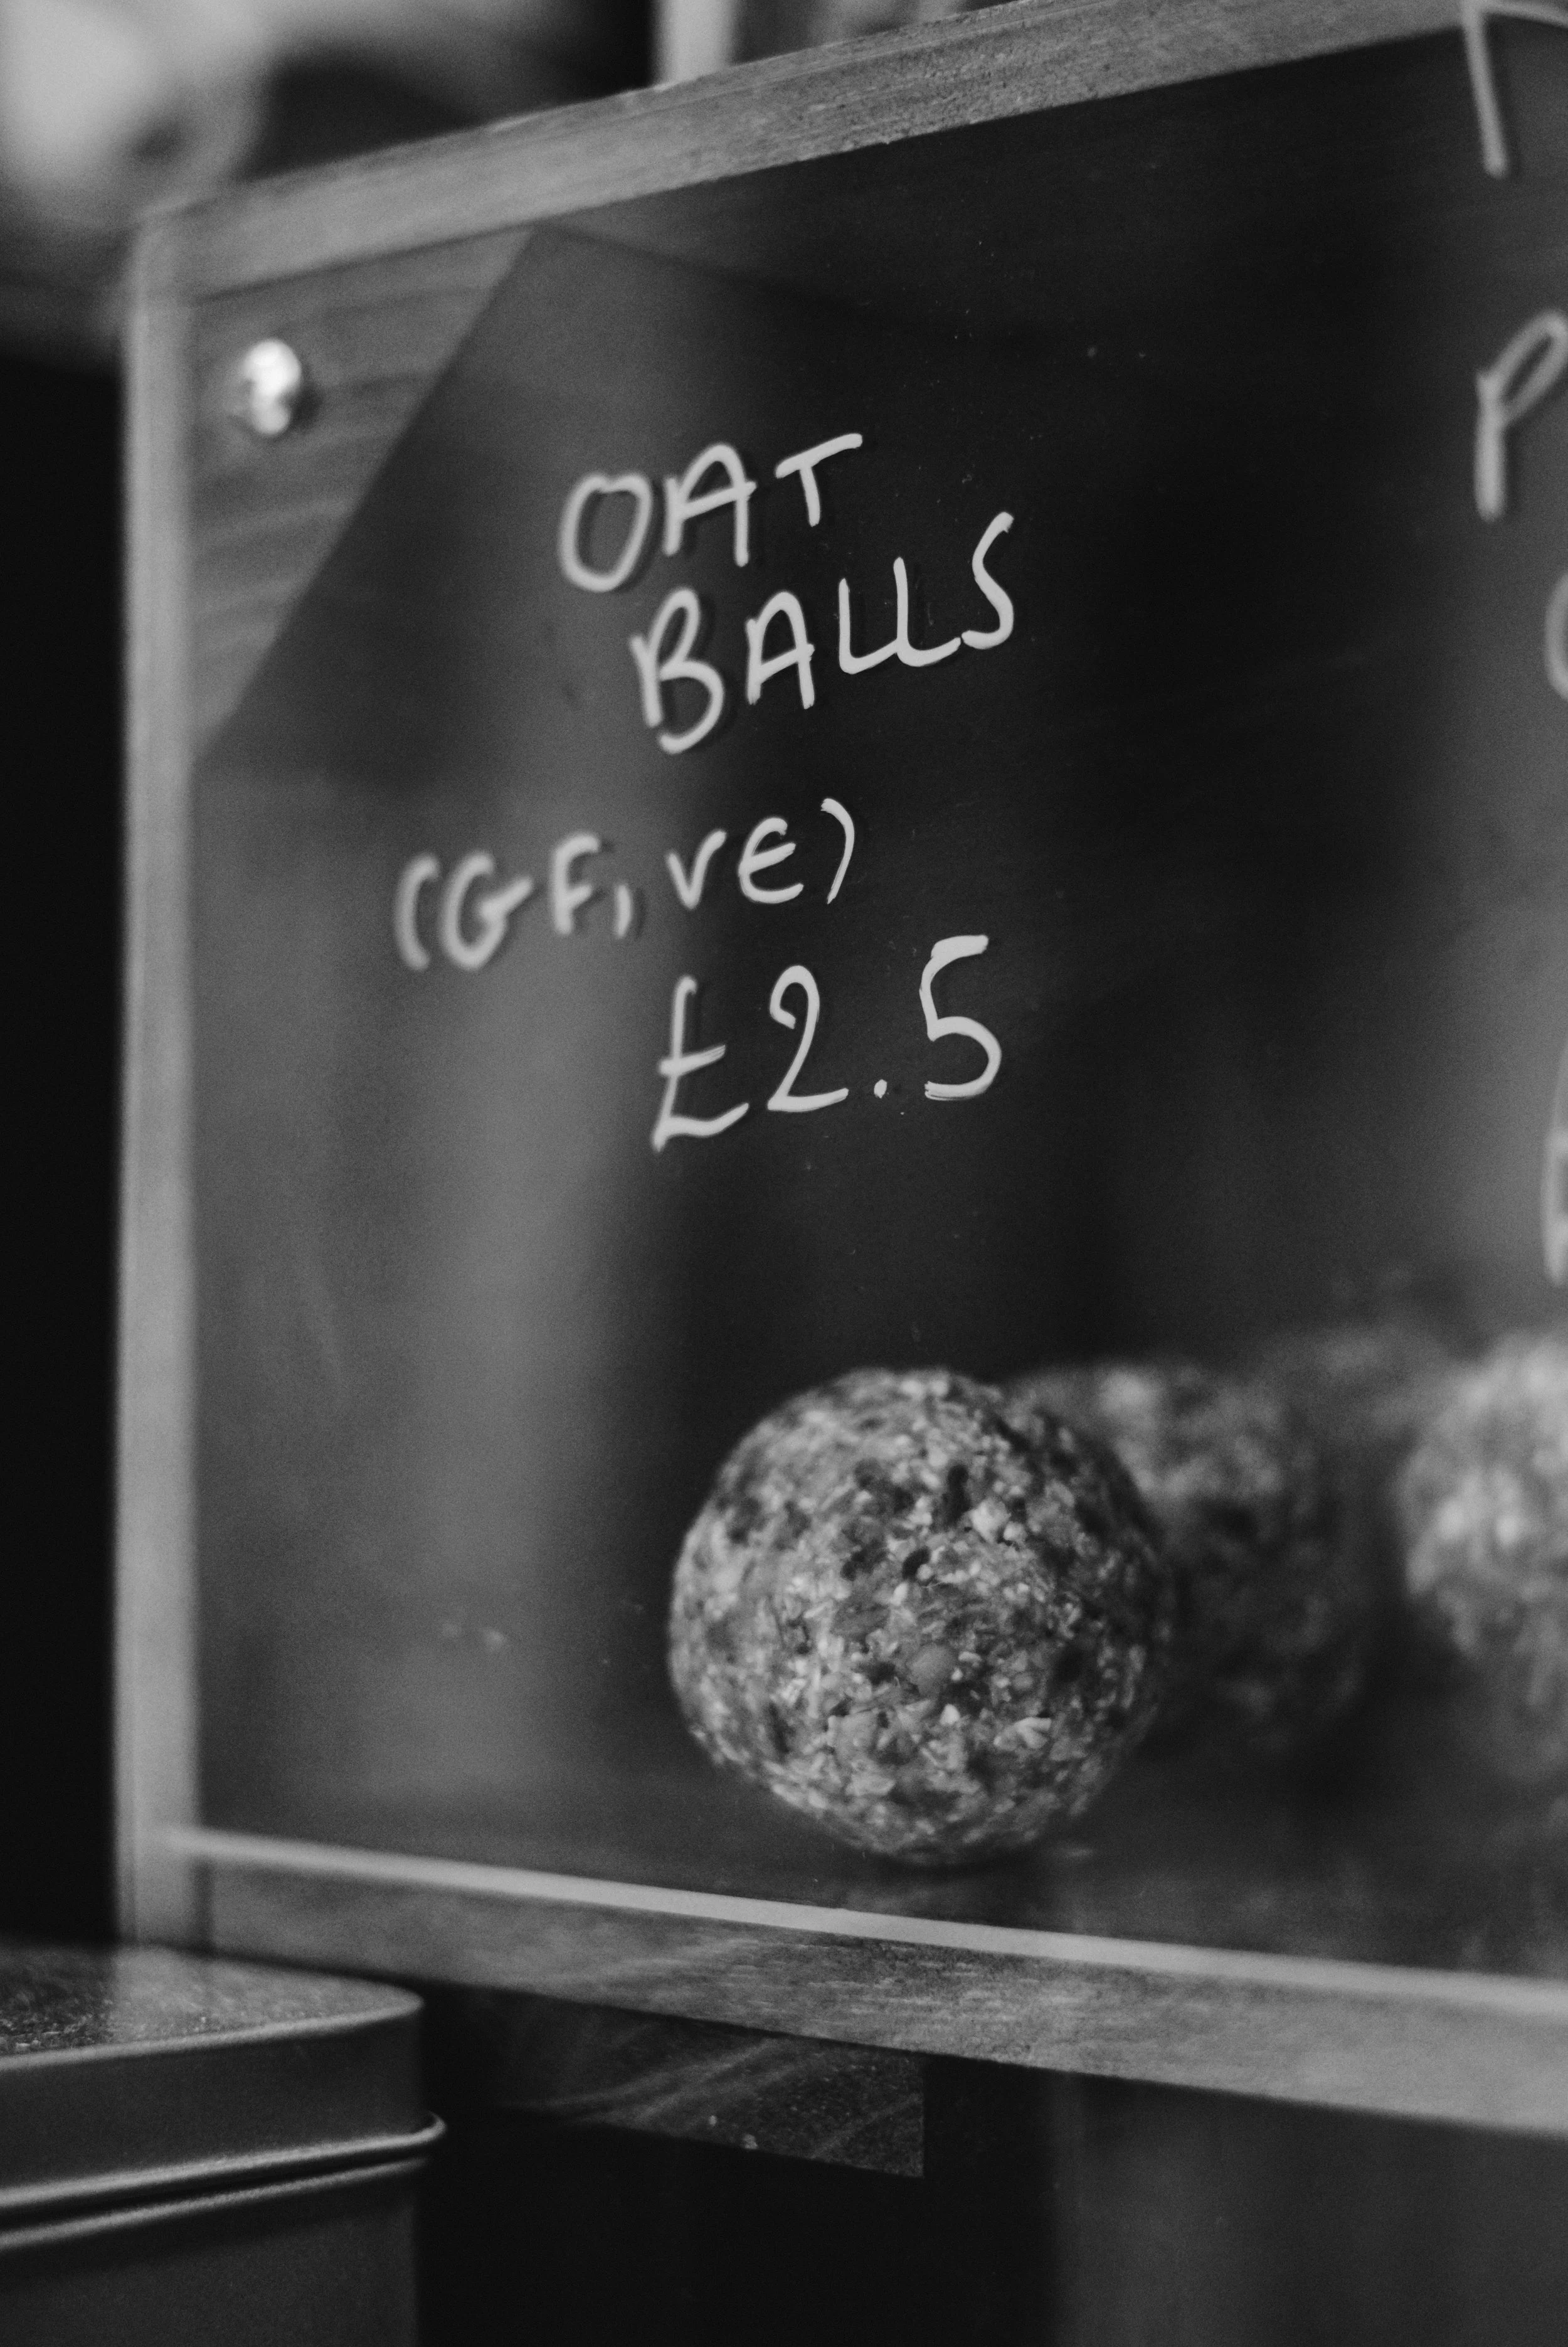 OAT
BALLS
(GF, VE)
£2.5